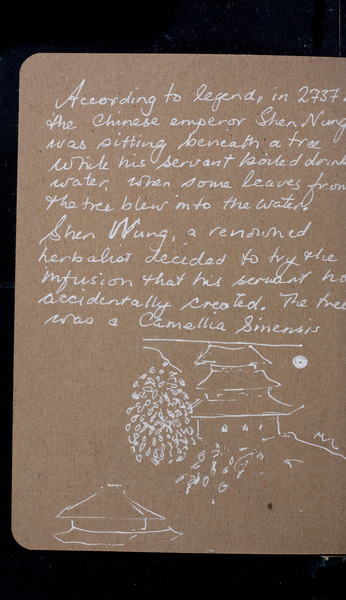 According to legend, in 2737
the Chinese emperor Shen Nung
was sitting beneath a tree
while his servant boiled drink
water, when some leaves from
the tree blew into the water.
Shen Nung, a renowned
herbalist decided to try the
infusion that his servant ha
accidentally created. The tree
was a Camellia Sinensis